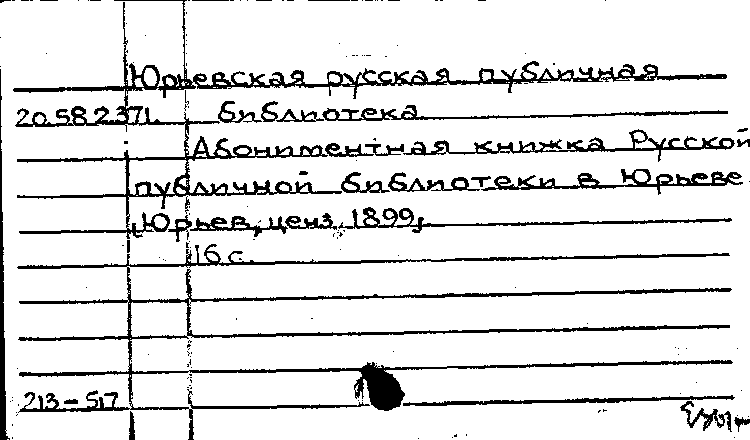 Юрьевская русская публичная
20.58.2.371. библиотека
Абониментная книжка Русской
публичной библиотеки в Юрьеве
Юрьев, ценз. 1899,
16 с.
213-517